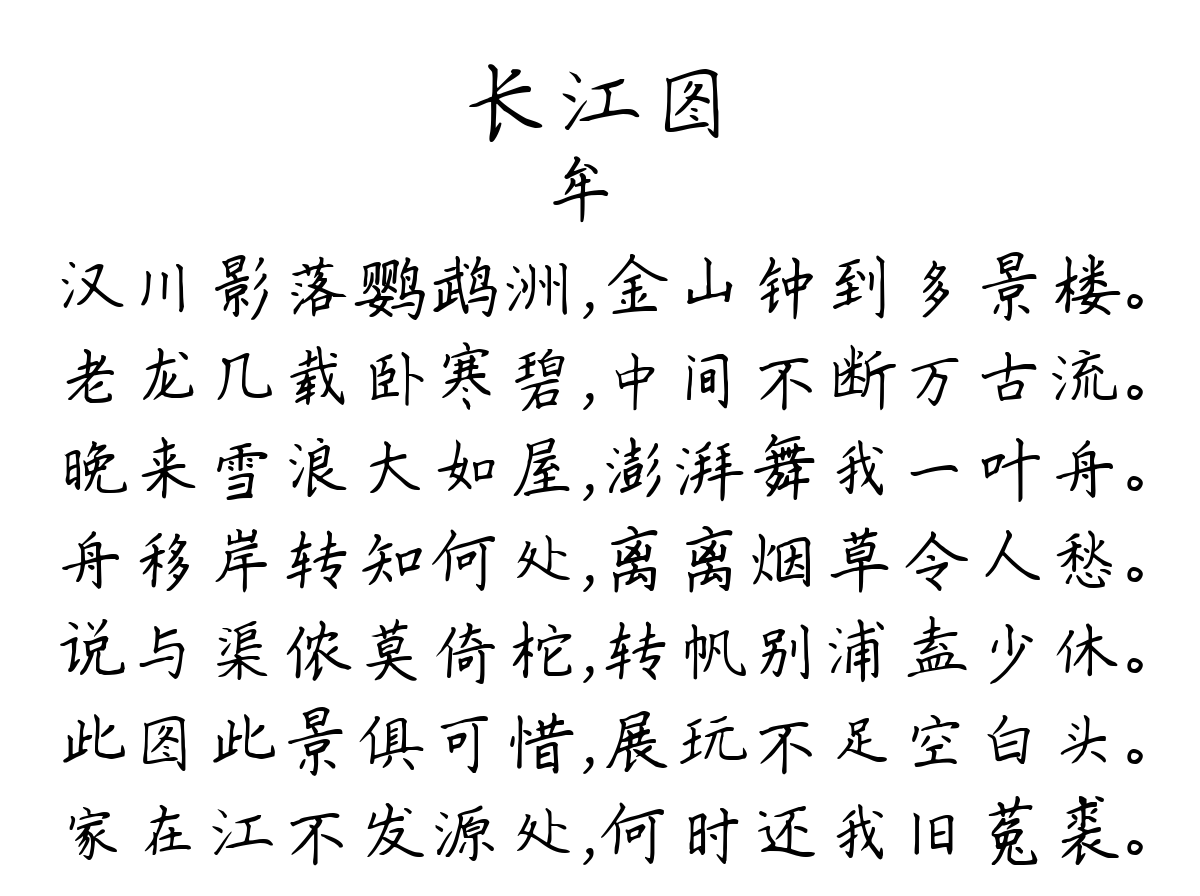 长江图
牟
汉川影落鹦鹉洲,金山钟到多景楼。
老龙几载卧寒碧,中间不断万古流。
晚来雪浪大如屋,澎湃舞我一叶舟。
舟移岸转知何处,离离烟草令人愁。
说与渠侬莫倚柁,转帆别浦盍少休。
此图此景俱可惜,展玩不足空白头。
家在江不发源处,何时还我旧菟裘。